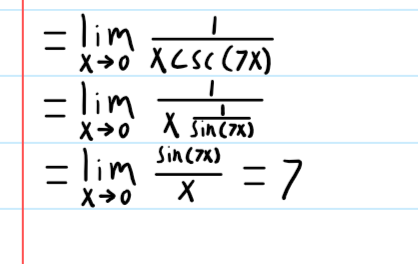 = lim x→0 1 / x csc(7x)
= lim x→0 1 / x 1/sin(7x)
= lim x→0 sin(7x) / x = 7